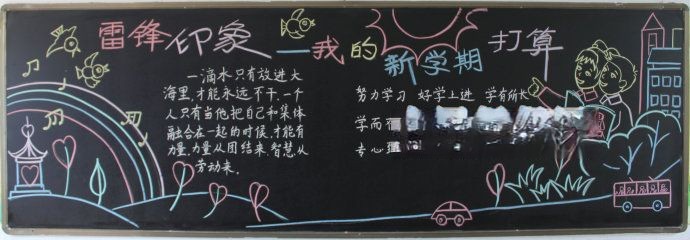 雷锋印象——我的新学期打算
一滴水只有放进大
海里,才能永远不干,一个
人只有当他把自己和集体
融合在一起的时候,才能有
力量,力量从团结来,智慧从
劳动来。
努力学习 好学上进 学有所长
学而
专心